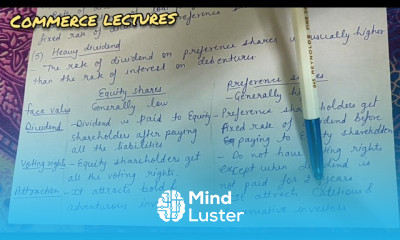 COMMERCE LECTURES
fixed rate of
(5) Heavy dividend
The rate of dividend on preference shares is usually higher
than the rate of interest on debentures.
Equity shares
Preference
Face value
Generally low
- Generally
Dividend
- Dividend is paid to Equity
shareholders after paying
all the liabilities
- Preference shareholders get
fixed rate of dividend before
paying to Equity shareholders
Voting right
- Equity shareholders get
all the voting rights.
- Do not have voting rights
except when dividend is
not paid for 2 years
Attraction
- It attracts bold &
adventurous
attract cautious &
investors
Mind
Luster